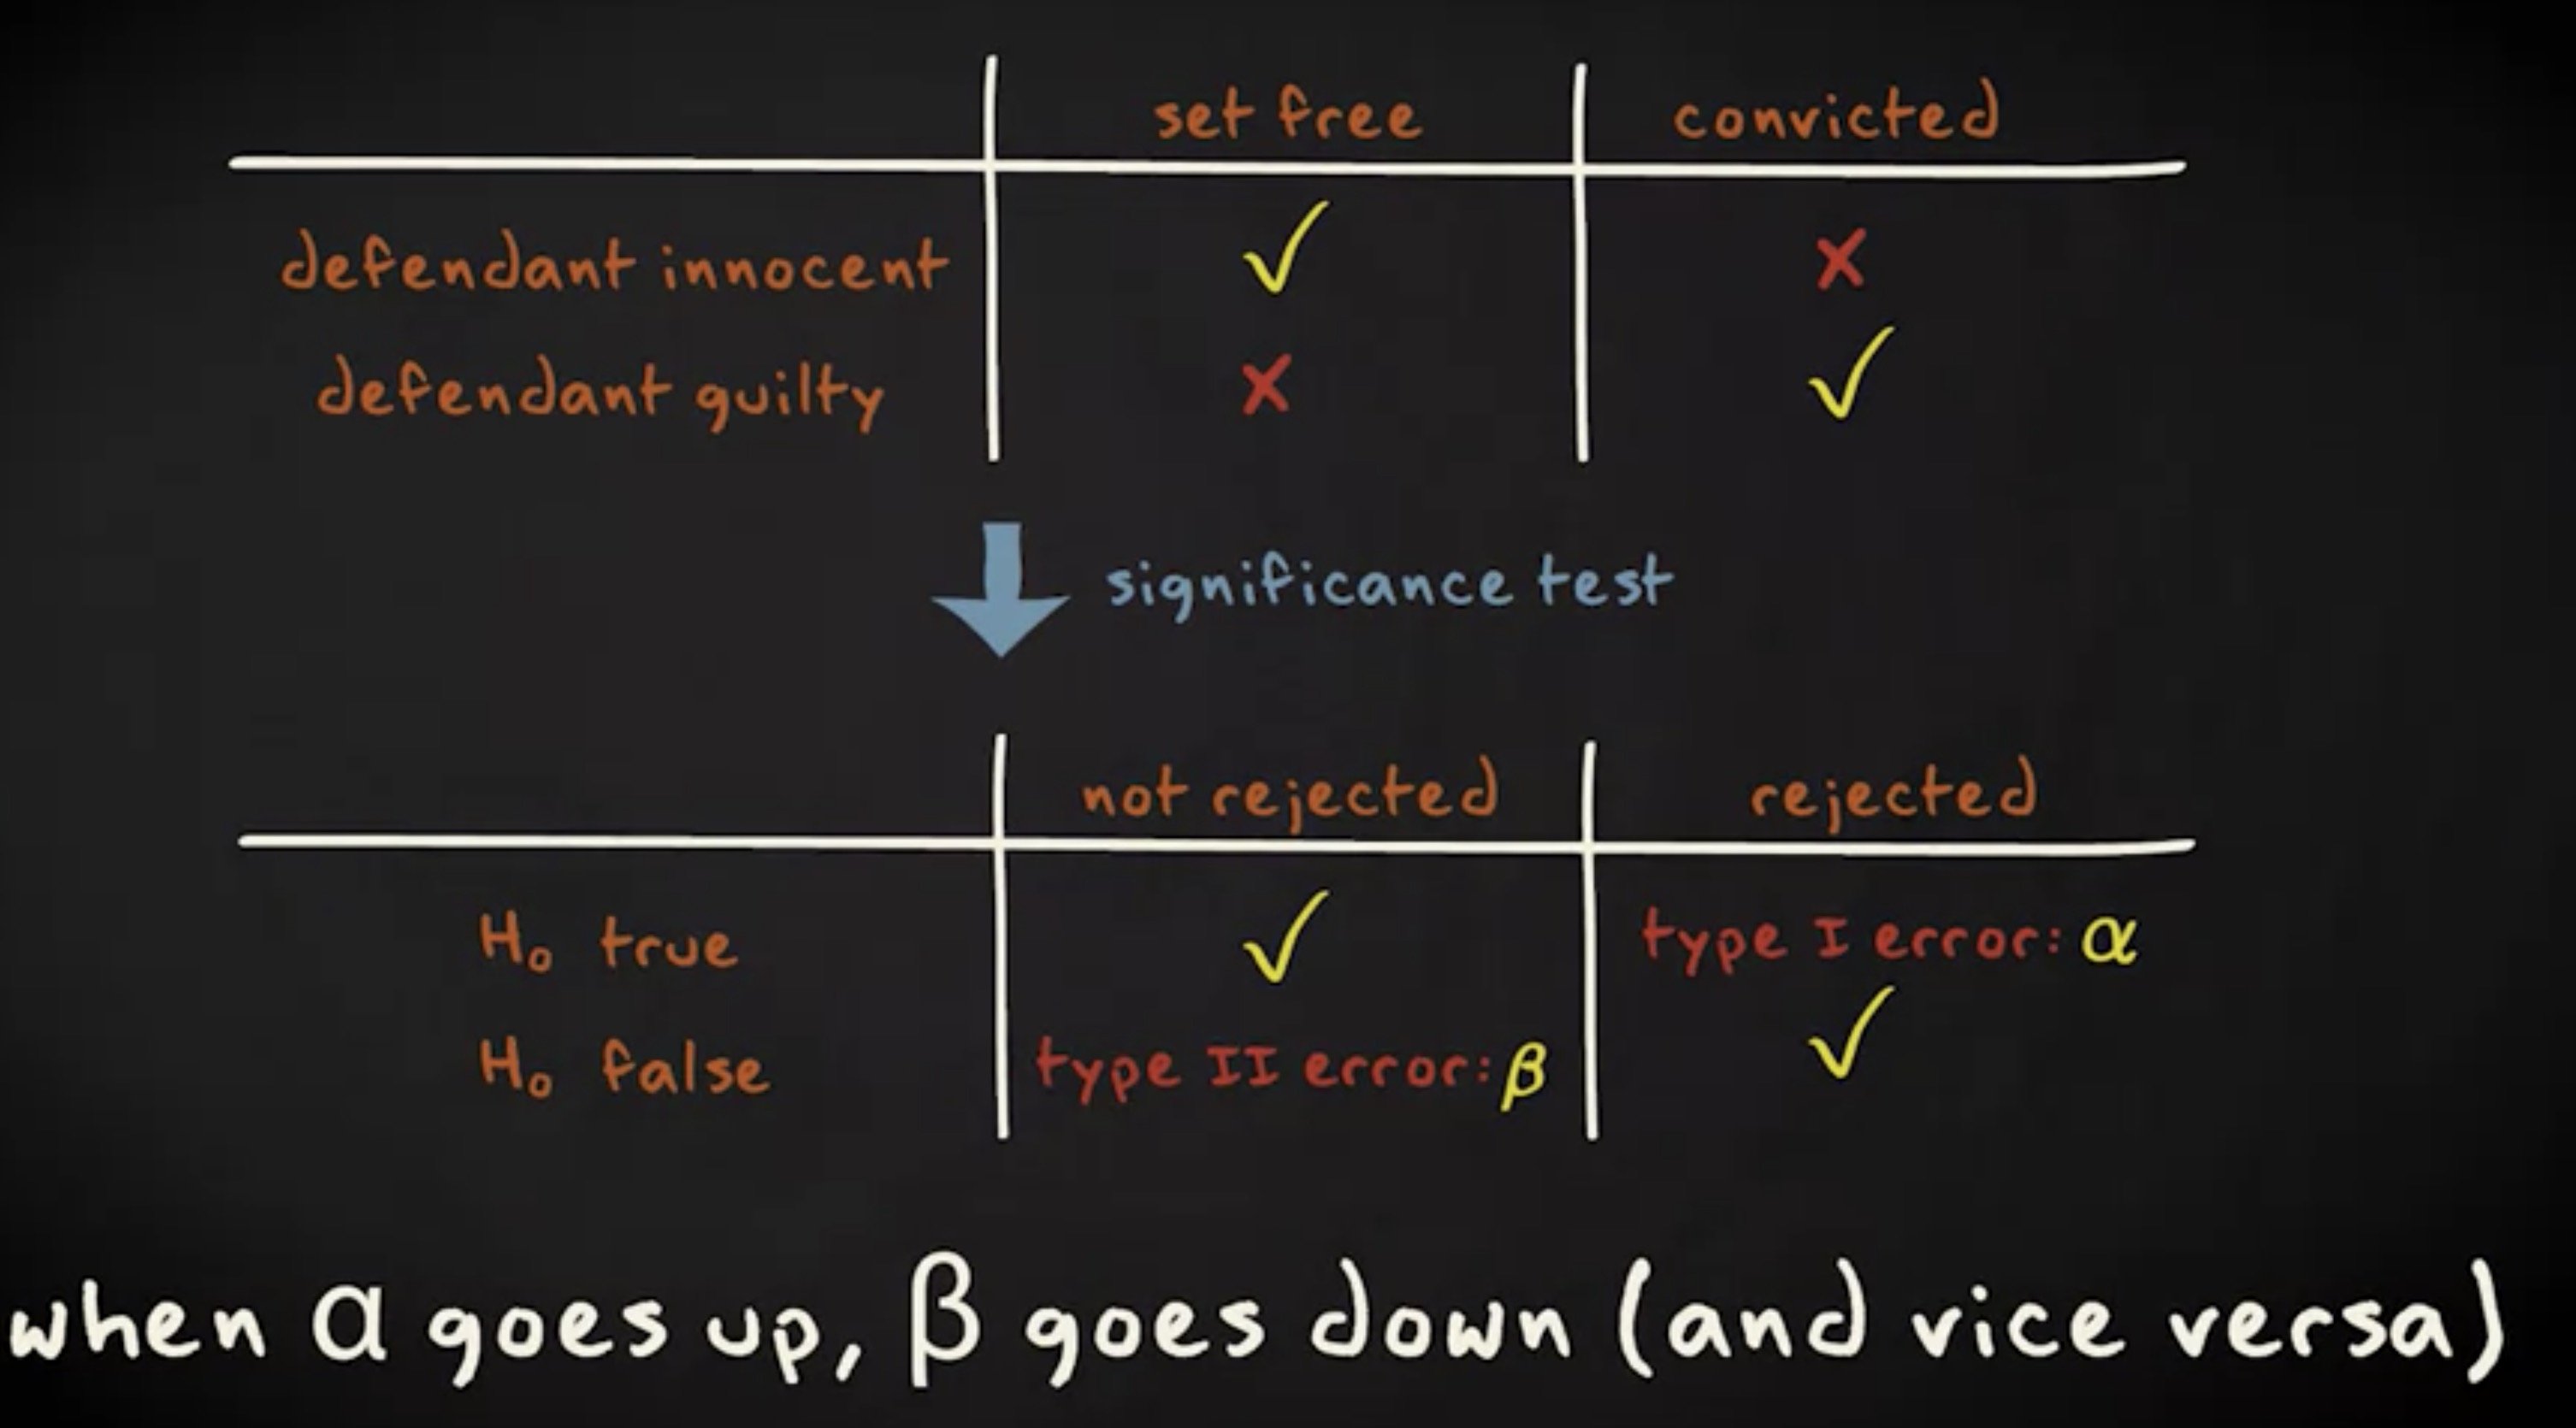 set free convicted
defendant innocent ✓ ✗
defendant guilty ✗ ✓
significance test
not rejected rejected
H₀ true ✓ type I error: α
H₀ false type II error: β ✓
when α goes up, β goes down (and vice versa)